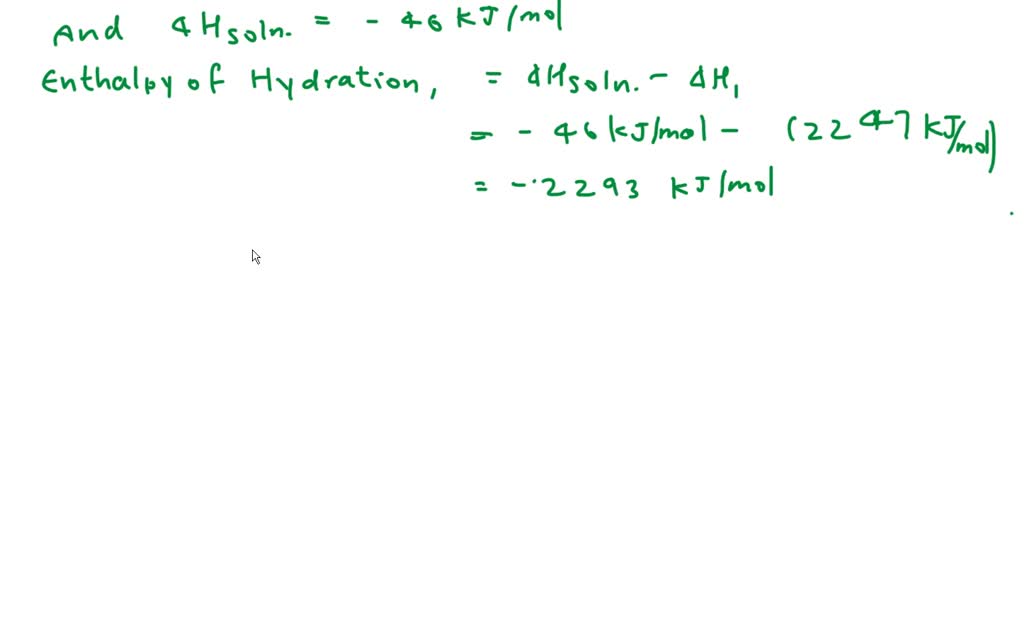 And ΔHsoln. = - 46 kJ/mol
Enthalpy of Hydration, = ΔHsoln. - ΔH1
= - 46 kJ/mol - (2247 kJ/mol)
= - 2293 kJ/mol